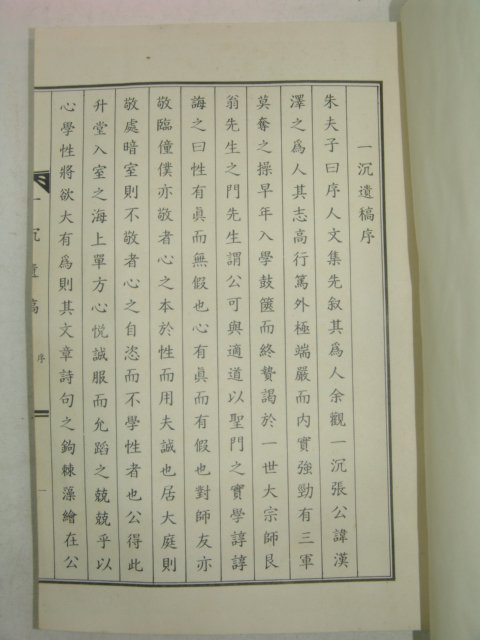 一沉遺稿序
朱夫子曰序人文集先叙其爲人余觀一沉張公諱漢
澤之爲人其志高行篤外極端嚴而内實強勁有三軍
莫奪之操早年入學鼓篋而終贄謁於一世大宗師艮
翁先生之門先生謂公可與適道以聖門之實學諄諄
誨之曰性有眞而無假也心有眞而有假也對師友亦
敬臨僮僕亦敬者心之本於性而用夫誠也居大庭則
敬處暗室則不敬者心之自恣而不學性者也公得此
升堂入室之海上單方心悦誠服而允蹈之兢兢乎以
心學性將欲大有爲則其文章詩句之鉤棘藻繪在公
一沉遺稿
序
一